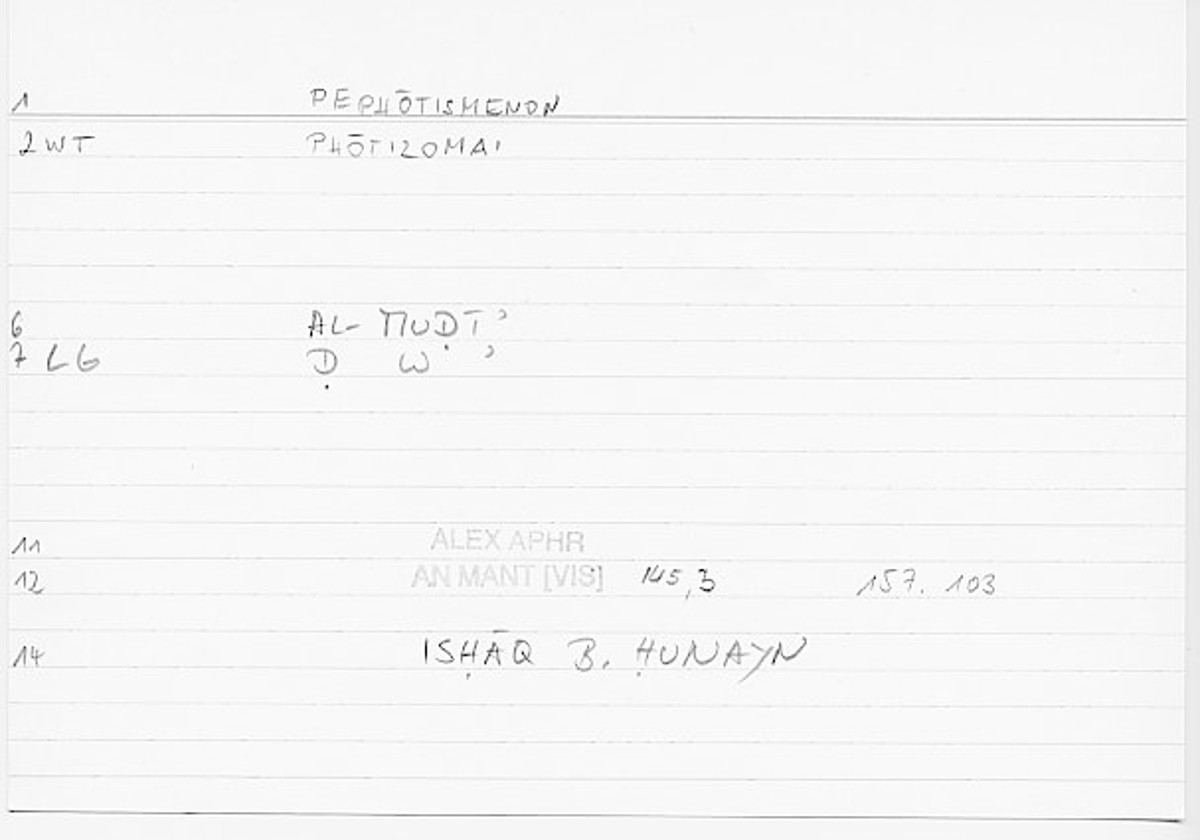 1 PEPHŌTISMENON
2 WT PHŌTIZOMAI
6 AL-MUḌĪʾ
7 LG Ḍ W ʾ
11 ALEX APHR
12 AN MANT [VIS] 145,3 157. 103
14 ISḤĀQ B. ḤUNAYN